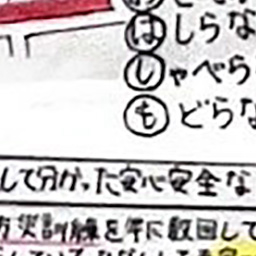 はしらな
しゃべら
もどらな
して分かった安心安全な
災訓練を年に数回して